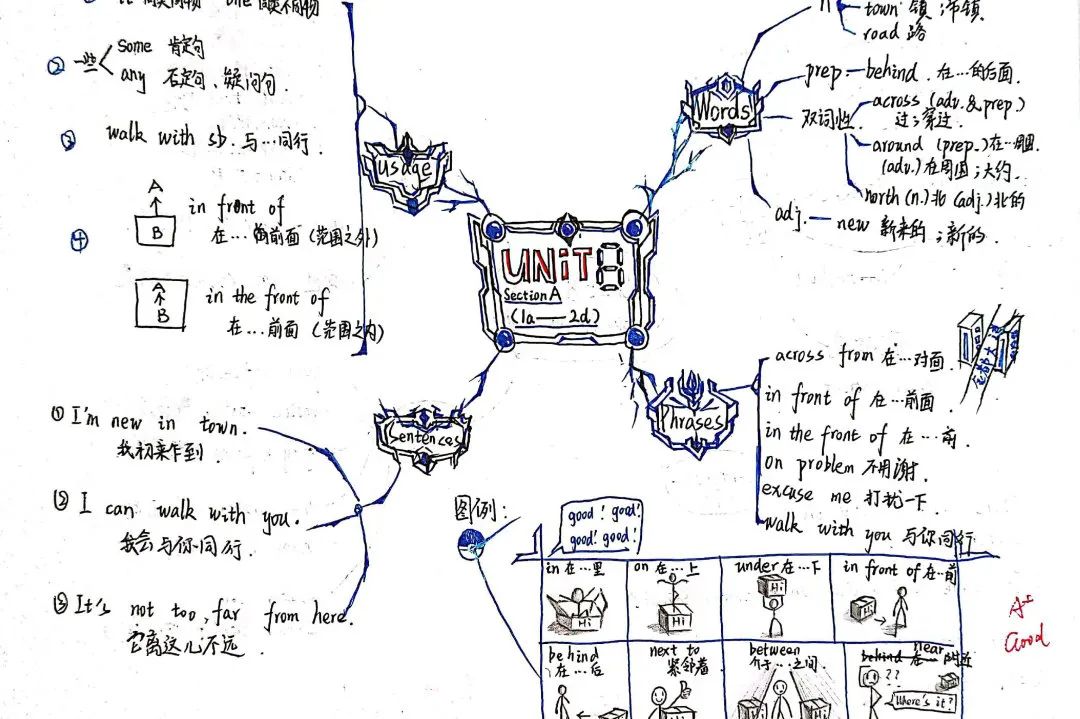 ② 一些
some 肯定句
any 否定句、疑问句.
③ walk with sb. 与…同行.
④
A
B
in front of
在…的前面(范围之外)
A
B
in the front of
在…前面(范围之内)
Usage
Words
n
town 镇;市镇
road 路
prep. behind. 在…的后面.
双词性
across (adv.&prep.)
过;穿过.
around (prep.)在…周围.
(adv.)在周围;大约.
north (n.)北 (adj.)北的
adj. new 新来的;新的.
UNiT 8
Section A
(1a——2d)
Sentences
① I'm new in town.
我初来乍到.
② I can walk with you.
我会与你同行.
③ It's not too far from here.
它离这儿不远.
Phrases
across from 在…对面.
in front of 在…前面.
in the front of 在…前.
on problem 不用谢.
excuse me 打扰一下
walk with you 与你同行
图例:
good! good!
good! good!
in 在…里
Hi
on 在…上
Hi
under 在…下
Hi
in front of 在…前
Hi
behind
在…后
next to
紧邻着
Hi
between
介于…之间.
near
behind 在… 附近
??
Where's it?
A+
Good